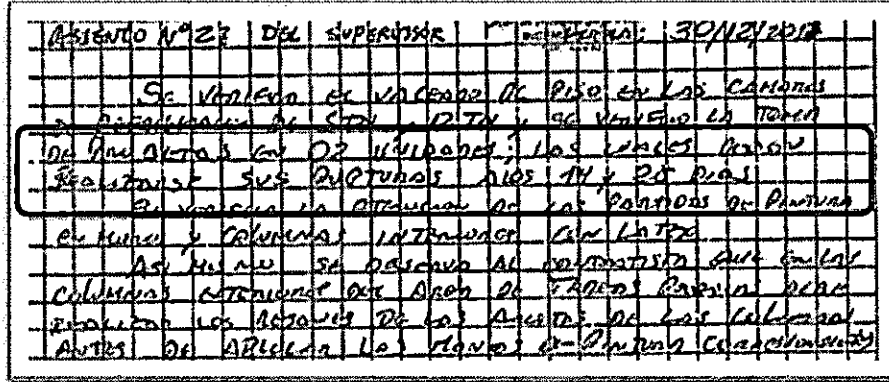 ASIENTO Nº 27 DEL SUPERVISOR 30/12/201
SE VERIFICA EL VACEADO DE PISO EN LAS CAMARAS
DE DE 5TN Y 12TN Y SE VERIFICO LA TOMA
DE PROBETAS EN 02 UNIDADES; LAS CUALES DEBEN
REALIZARSE SUS RUPTURAS A LOS 14 y 28 DIAS
SE VERIFICA LA DE LAS PARTIDAS DE PINTURA
EN MUROS Y COLUMNAS INTERIORES CON LATEX
ASI MISMO SE OBSERVO AL CONTRATISTA QUE EN LAS
COLUMNAS EXTERIORES DEL AREA DE DEBE
REALIZAR LOS DE LAS ARISTAS DE LAS COLUMNAS
ANTES DE APLICAR LAS MANOS DE PINTURA